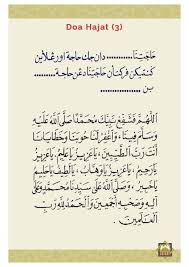 Doa Hajat (3)
حاجتنا ........... دان جك حاجة اورڠ لاين
كنتيكن فركتأن حاجتنا دڠن حاجة ...........
بن ................
اللَّهُمَّ شَفِّعْ نَبِيَّكَ مُحَمَّدًا صَلَّى اللهُ عَلَيْهِ
وَسَلَّمَ فِيْنَا، وَاغْفِرْلَنَا حُوبَنَا وَخَطَايَانَا
أَنْتَ رَبُّ الطَّيِّبِيْنَ، يَاعَزِيْزُ يَاعَلِيْمُ، يَاعَزِيْزُ
يَاعَزِيْزُ يَارَحِيْمُ
وَصَلَّى اللهُ عَلَى سَيِّدِنَا مُحَمَّدٍ وَعَلَى
آلِهِ وَصَحْبِهِ أَجْمَعِيْنَ وَالْحَمْدُ لِلَّهِ رَبِّ
الْعَالَمِيْنَ